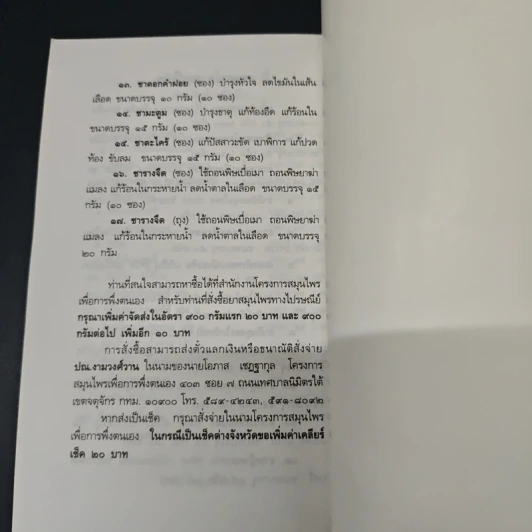 ๑๓. ชาดอกคำฝอย (ซอง) บำรุงหัวใจ ลดไขมันในเส้น
เลือด ขนาดบรรจุ ๑๐ กรัม (๑๐ ซอง)
๑๔. ชามะตูม (ซอง) บำรุงธาตุ แก้ท้องอืด แก้ร้อนใน
ขนาดบรรจุ ๑๕ กรัม (๑๐ ซอง)
๑๕. ชาตะไคร้ (ซอง) แก้ปัสสาวะขัด เบาพิการ แก้ปวด
ท้อง ขับลม ขนาดบรรจุ ๑๕ กรัม (๑๐ ซอง)
๑๖. ชารางจืด (ซอง) ใช้ถอนพิษเบื่อเมา ถอนพิษยาฆ่า
แมลง แก้ร้อนในกระหายน้ำ ลดน้ำตาลในเลือด ขนาดบรรจุ ๑๕
กรัม (๑๐ ซอง)
๑๗. ชารางจืด (ถุง) ใช้ถอนพิษเบื่อเมา ถอนพิษยาฆ่า
แมลง แก้ร้อนในกระหายน้ำ ลดน้ำตาลในเลือด ขนาดบรรจุ
๒๐ กรัม
ท่านที่สนใจสามารถหาซื้อได้ที่สำนักงานโครงการสมุนไพร
เพื่อการพึ่งตนเอง สำหรับท่านที่สั่งซื้อยาสมุนไพรทางไปรษณีย์
กรุณาเพิ่มค่าจัดส่งในอัตรา ๙๐๐ กรัมแรก ๒๐ บาท และ ๙๐๐
กรัมต่อไป เพิ่มอีก ๑๐ บาท
การสั่งซื้อสามารถส่งตั๋วแลกเงินหรือธนาณัติสั่งจ่าย
ปณ.งามวงศ์วาน ในนามของนายโอภาส เชฏฐากุล โครงการ
สมุนไพรเพื่อการพึ่งตนเอง ๔๐๓ ซอย ๗ ถนนเทศบาลนิมิตรใต้
เขตจตุจักร กทม. ๑๐๙๐๐ โทร. ๕๘๙-๔๒๔๓, ๕๙๑-๘๐๙๒
หากส่งเป็นเช็ค กรุณาสั่งจ่ายในนามโครงการสมุนไพร
เพื่อการพึ่งตนเอง ในกรณีเป็นเช็คต่างจังหวัดขอเพิ่มค่าเคลียร์
เช็ค ๒๐ บาท